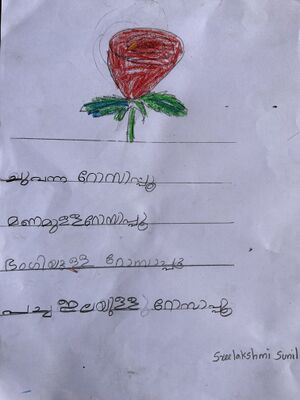 ചുവന്ന റോസിപ്പൂ
മണമുള്ളറോസിപ്പൂ
ഭംഗിയുള്ള റോസാപ്പൂ
പച്ച ഇലയുള്ള റോസാപ്പൂ
Sreelakshmi Sunil